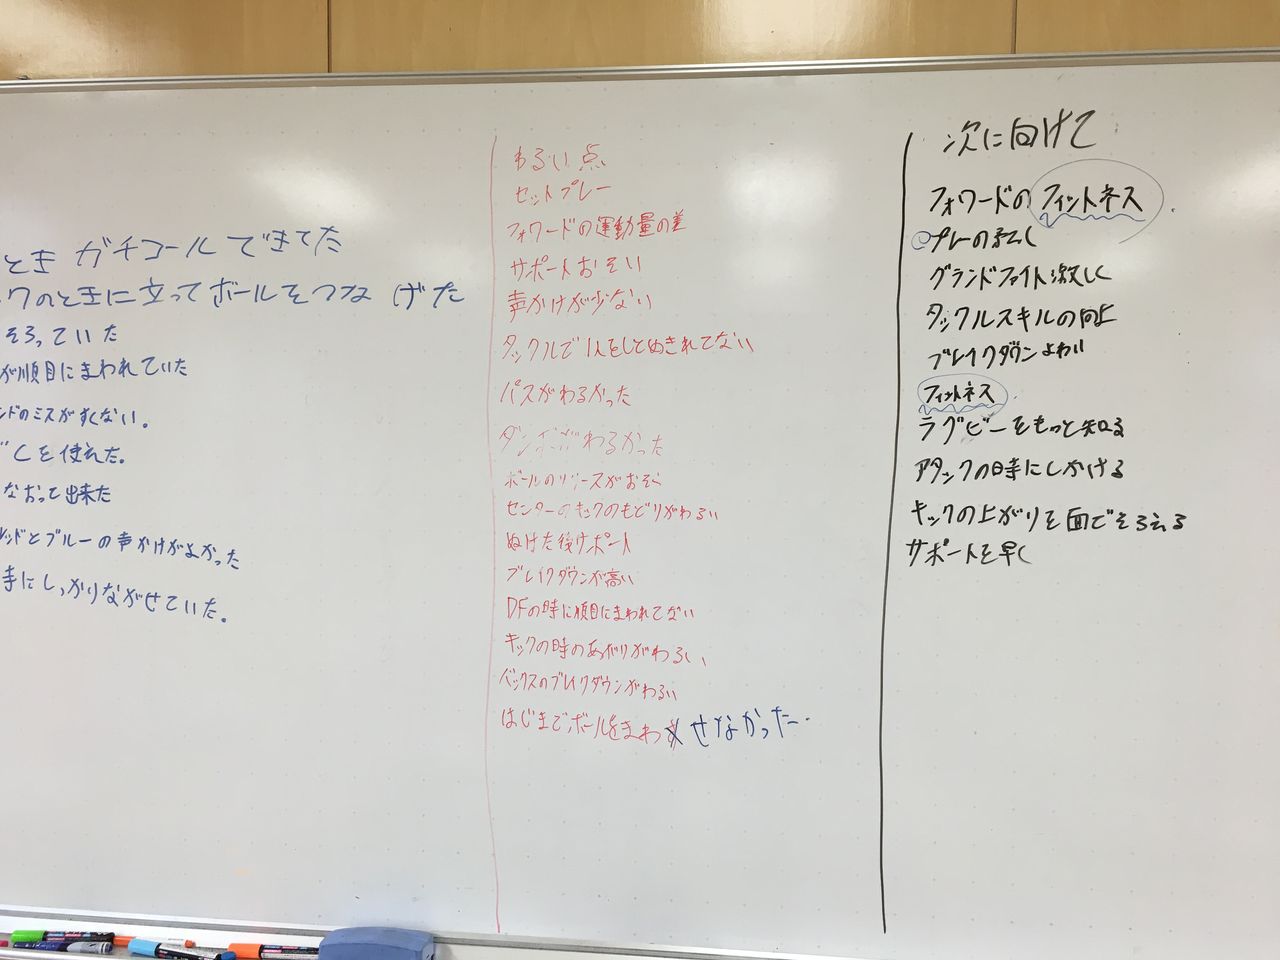 とき ガチコールできてた
クのときに立ってボールをつなげた
そろっていた
が順目にまわれていた
ンドのミスがすくない。
を使えた。
なおって出来た
ッドとブルーの声かけがよかった
手にしっかりながせていた。
わるい点
セットプレー
フォワードの運動量の差
サポートおそい
声かけが少ない
タックルで1人をしとめきれてない
パスがわるかった
がわるかった
ボールのリリースがおそい
センターのキックのもどりがわるい
ぬけた後サポート
ブレイクダウンが高い
DFの時に順目にまわれてない
キックの時のあがりがわるい
バックスのブレイクダウンがわるい
はじまでボールをまわせなかった
次に向けて
フォワードのフィットネス
プレーの
グランドファイト激しく
タックルスキルの向上
ブレイクダウンよわい
フィットネス
ラグビーをもっと知る
アタックの時にしかける
キックの上がりを面でそろえる
サポートを早く